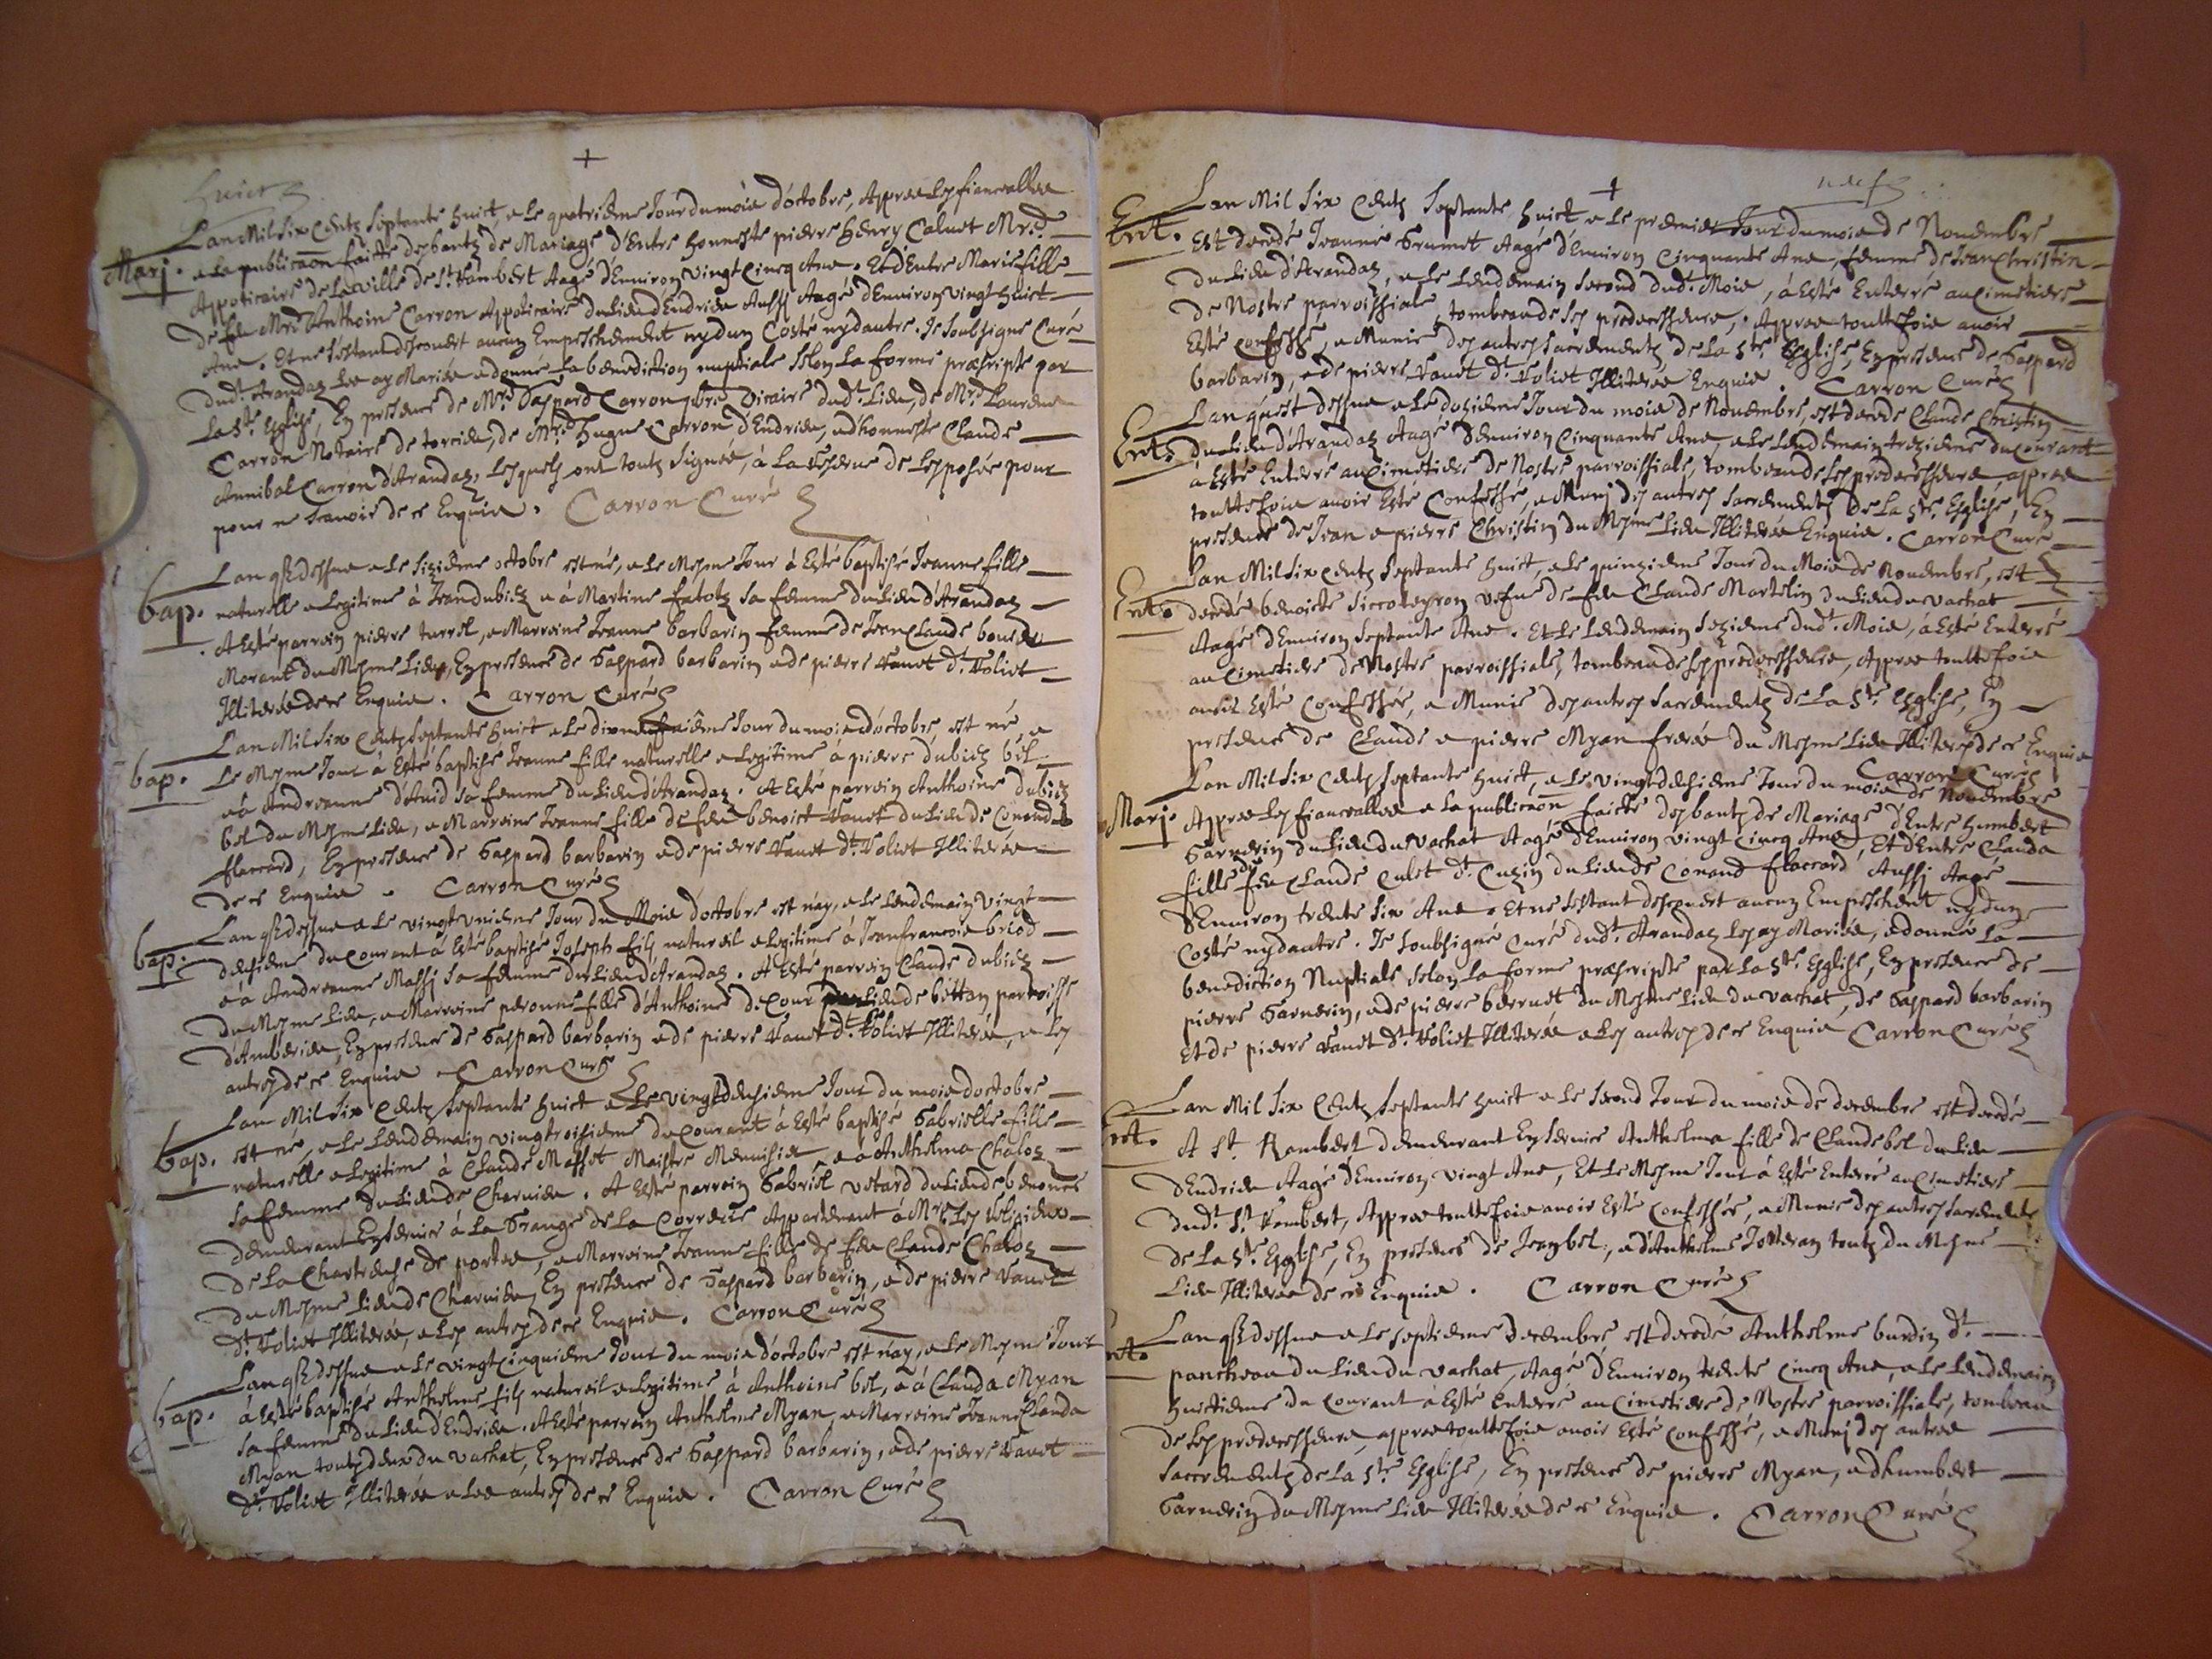 +
huict
Lan Mil Six Centz Septante huict, e le quatrieme Jour du mois d'octobre, Appres les fiancailles
Marj. e la publicaon faicte des bantz de Mariage d'Entre honneste pierre henry Caluet Mre.
Appoticaire de la ville de St. Rambert Aagé d'Enuiron vingt Cincq Ans. Et d'Entre Marie fille
de feu Mre. Anthoine Carron Appoticaire du lieu d'Endrieu Aussj Aagé d'Enuiron vingt huict
Ans. Et ne s'estant descouuert aucun Empeschement ny d'un Costé ny d'autre. Je soubsigné Curé
dudt. Arandaz les ay Mariés e donné la benediction nuptiale selon la forme præscripte par
la Ste. Esglise, En presence de Mre. Gaspard Carron pbre. Vicaire dudt. lieu, de Mre. Laurent
Carron Notaire de torcieu, de Mre. Hugue Carron d'Endrieu, e d'honneste Claude
Annibal Carron d'Arandaz, lesquels ont toutz signés, à la reserue de l'esposée pour
pour ne scauoir de ce Enquis. Carron Curé
Lan q̃ dessus e le sizieme octobre est né, e le Mesme Jour à Esté baptisé Jeanne fille
bap. naturelle e legitime à Jean dubiez e à Martine fatotz sa femme du lieu d'Arandaz
A Esté parrein pierre turrel, e Marreine Jeanne barbarin femme de Jean Claude bourdin
Morant du Mesme lieu, En presence de Gaspard barbarin e de pierre Vanet dt. Voliet
Illiterés de ce Enquis. Carron Curé
Lan Mil Six Centz Septante huict e le dixneufuiême Jour du mois d'octobre, est né, e
bap. le Mesme Jour à Esté baptisé Jeanne fille naturelle e legitime à pierre dubiez bel
e à Andreanne d'Auid sa femme du lieu d'Arandaz. A Esté parrein Anthoine dubiez
bel du Mesme lieu, e Marreine Jeanne fille de feu benoict Vanet du lieu de Conand
flaccard, En presence de Gaspard barbarin e de pierre Vanet dt. Voliet Illiterés
de ce Enquis. Carron Curé
Lan q̃ dessus e le vingt vnieme Jour du Mois d'octobre est nay, e le lendemain vingt
bap. deusieme du Courant à Esté baptisé Joseph fils naturel e legitime à Jean francois briod
e à Andreanne Massj sa femme du lieu d'Arandaz. A Esté parrein Claude dubiez
du Mesme lieu, e Marreine peronne fille d'Anthoine de Cour du lieu de bettan parroisse
d'Amberieu, En presence de Gaspard barbarin e de pierre Vanet dt. Voliet Illiterés, e les
autres de ce Enquis. Carron Curé
Lan Mil Six Centz Septante huict e le vingt deusieme Jour du mois d'octobre
bap. est né, e le lendemain vingtroisieme du Courant à Esté baptisé Gabrielle fille
naturelle e legitime à Claude Masset Maistre Menuisier e à Anthelma Chaloz
sa femme du lieu de Charuieu. A Esté parrein Gabriel vetard du lieu de benonce
demeurant En seruice à la Grange de la Correrie Appartenant à Mrs. les Religieux
de la Chartreuse de portes, e Marreine Jeanne fille de feu Claude Chaloz
du Mesme lieu de Charuieu, En presence de Gaspard barbarin, e de pierre Vanet
dt. Voliet Illiterés, e les autres de ce Enquis. Carron Curé
Lan q̃ dessus e le vingt Cinquieme Jour du mois d'octobre est nay, e le Mesme Jour
bap. à Esté baptisé Anthelme fils naturel e legitime à Anthoine bel, e à Clauda Myan
sa femme du lieu d'Endrieu. A Esté parrein Anthelme Myan, e Marreine Jeanne Clauda
Myan toutz deux du Vachat, En presence de Gaspard barbarin, e de pierre Vanet
dt. Voliet Illiterés e les autres de ce Enquis. Carron Curé
+
neuf
Lan Mil Six Centz Septante huict e le premier Jour du mois de Nouembre
Ent. Est decedé Jeanne Grumet Aagé d'Enuiron Cinquante Ans, femme de Jean Christin
du lieu d'Arandaz, e le lendemain second dudt. Mois, à Esté Enterré au Cimetiere
de Nostre parroissiale, tombeau de ses predecesseurs, Appres touttefois auoir
Esté Confessé, e Munie des autres sacrementz de la Ste. Esglise, En presence de Gaspard
barbarin, e de pierre Vanet dt. Voliet Illiterés Enquis. Carron Curé
Lan q̃uest dessus e le dozieme Jour du mois de Nouembre, est decedé Claude Christin
Ent. du lieu d'Arandaz Aagé d'Enuiron Cinquante Ans, e le lendemain trezieme du Courant
à Esté Enterré au Cimetiere de Nostre parroissiale, tombeau de ses predecesseurs, appres
touttefois auoir Esté Confessé, e Munj des autres sacrementz de la Ste. Esglise, En
presence de Jean e pierre Christin du Mesme lieu Illiterés Enquis. Carron Curé
Lan Mil Six Centz Septante huict, e le quinzieme Jour du Mois de Nouembre, est
Ent. decedé benoicte Siccoteyron vefue de feu Claude Martelin du lieu du Vachat
Aagé d'Enuiron Septante Ans. Et le lendemain sezieme dudt. Mois, à Esté Enterré
au Cimetiere de Nostre parroissiale, tombeau de ses predecesseurs, Appres touttefois
auoir Esté Confessée, e Munie des autres sacrementz de la Ste. Esglise, En
presence de Claude e pierre Myan freres du Mesme lieu Illiteres de ce Enquis
Carron Curé
Lan Mil Six Centz Septante huict, e le vingt deusieme Jour du mois de Nouembre
Marj. Appres les fiancailles e la publicaon faicte des bantz de Mariage d'Entre humbert
Garnerin du lieu du Vachat Aagé d'Enuiron vingt Cincq Ans, Et d'Entre Clauda
fille de feu Claude Culet dt. Cuzin du lieu de Conand flaccard Aussj Aagé
d'Enuiron trente six Ans. Et ne s'estant descouuert aucun Empeschent ny d'un
Costé ny d'autre. Je soubsigné Curé dudt. Arandaz les ay Mariés, e donné la
benediction Nuptiale selon la forme præscripte par la Ste. Esglise, En presence de
pierre Garnerin, e de pierre berruet du Mesme lieu du Vachat, de Gaspard barbarin
Et de pierre Vanet dt. Voliet Illiterés e les autres de ce Enquis Carron Curé
Lan Mil Six Centz Septante huict e le second Jour du mois de decembre est decedé
Ent. A St. Rambert demeurant En seruice Anthelma fille de Claude bel du lieu
d'Endrieu Aagé d'Enuiron vingt Ans, Et le Mesme Jour à Esté Enterré au Cimetiere
dudt. St. Rambert, Appres touttefois auoir Esté Confessée, e Munie des autres sacrementz
de la Ste. Esglise, En presence de Jean bel, e d'Anthelme Jotteran toutz du Mesme
lieu Illiterés de ce Enquis. Carron Curé
Lan q̃ dessus e le septieme decembre est decedé Anthelme burdin dt.
Ent. pancheau du lieu du Vachat, Aagé d'Enuiron trente Cincq Ans, e le lendemain
huictieme du Courant à Esté Enterré au Cimetiere de Nostre parroissiale, tombeau
de ses predecesseurs, appres touttefois auoir Esté Confessé, e Munj des autres
sacrementz de la Ste. Esglise, En presence de pierre Myan, e d'humbert
Garnerin du Mesme lieu Illiterés de ce Enquis. Carron Curé